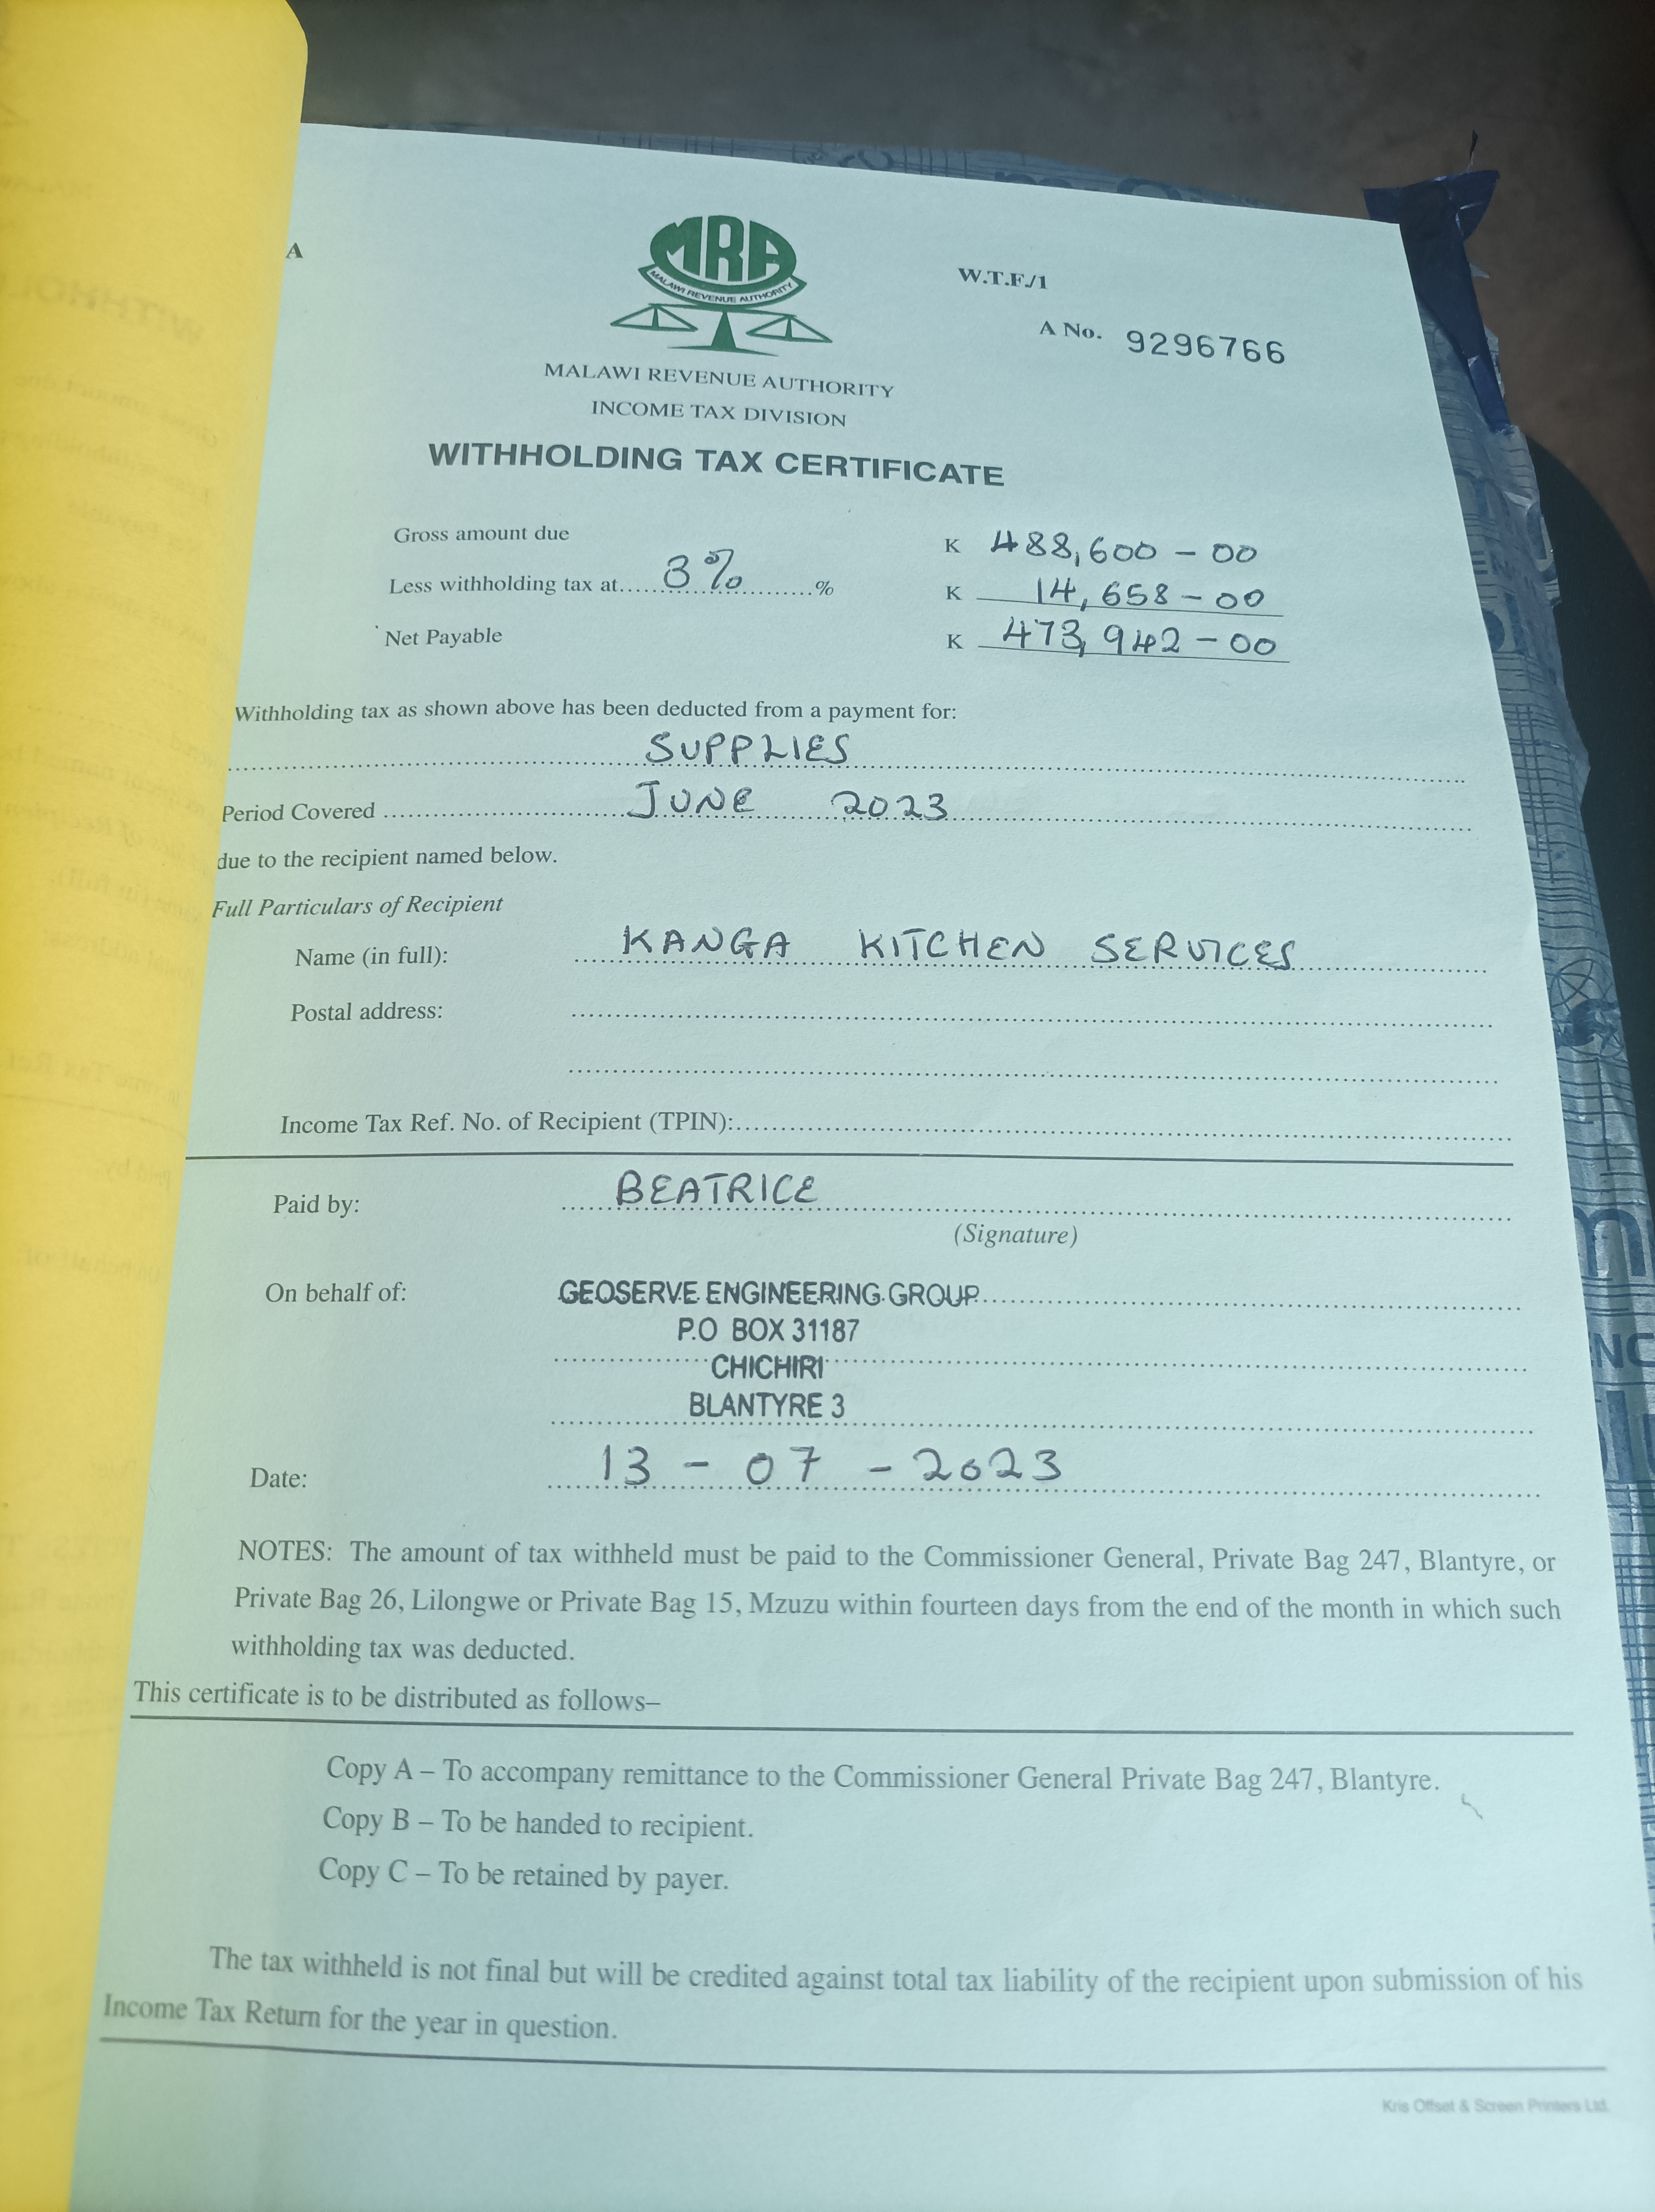 A
MRA
MALAWI REVENUE AUTHORITY
W.T.F./1
A No. 9296766
MALAWI REVENUE AUTHORITY
INCOME TAX DIVISION
WITHHOLDING TAX CERTIFICATE
Gross amount due K 488,600 - 00
Less withholding tax at.....3%.....% K 14,658 - 00
Net Payable K 473,942 - 00
Withholding tax as shown above has been deducted from a payment for:
SUPPLIES
Period Covered JUNE 2023
due to the recipient named below.
Full Particulars of Recipient
Name (in full): KANGA KITCHEN SERVICES
Postal address:
Income Tax Ref. No. of Recipient (TPIN):
Paid by: BEATRICE
(Signature)
On behalf of: GEOSERVE ENGINEERING GROUP
P.O BOX 31187
CHICHIRI
BLANTYRE 3
Date: 13 - 07 - 2023
NOTES: The amount of tax withheld must be paid to the Commissioner General, Private Bag 247, Blantyre, or
Private Bag 26, Lilongwe or Private Bag 15, Mzuzu within fourteen days from the end of the month in which such
withholding tax was deducted.
This certificate is to be distributed as follows–
Copy A – To accompany remittance to the Commissioner General Private Bag 247, Blantyre.
Copy B – To be handed to recipient.
Copy C – To be retained by payer.
The tax withheld is not final but will be credited against total tax liability of the recipient upon submission of his
Income Tax Return for the year in question.
Kris Offset & Screen Printers Ltd.